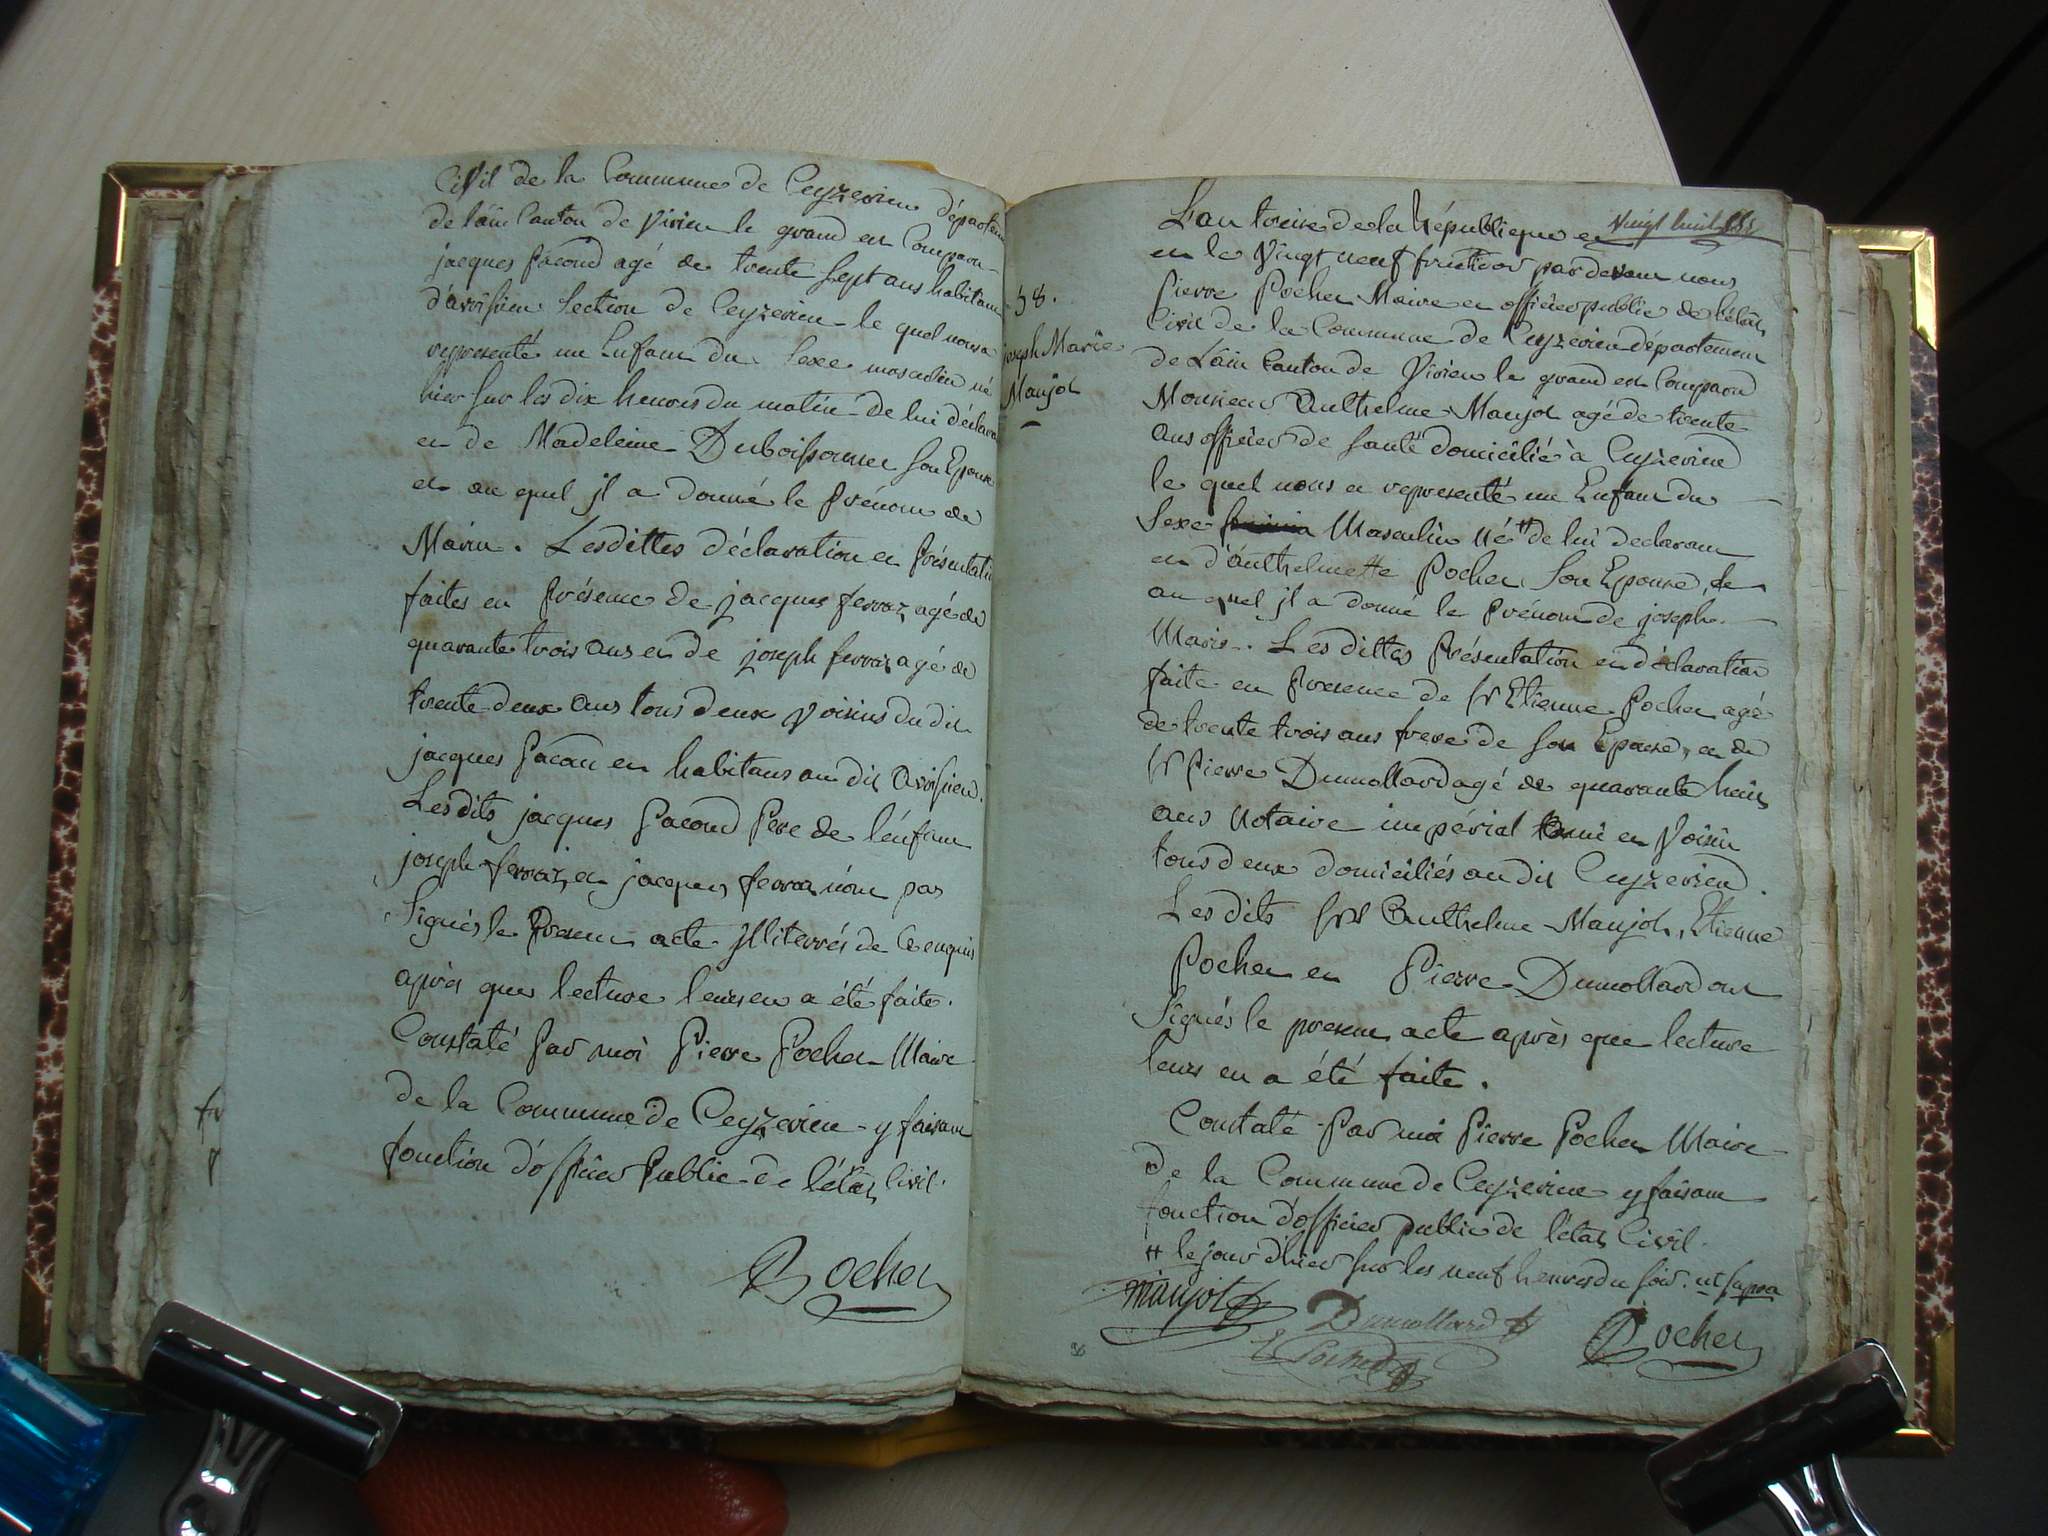 Civil de la Commune de Ceyzerieu départem
de lain Canton de Virieu le grand est Comparu
jacques Pacoud agé de trente sept ans habitant
d'avrissieu Section de Ceyzerieu le quel nous a
representé un Enfant du Sexe masculin né
hier sur les dix heures du matin de lui déclara
et de Madeleine Duboissonnet son Epouse
et au quel jl a donné le prénom de
Marin. Lesdittes déclaration et Présentati
faites en Présence de jacques ferraz agé de
quarante trois ans et de joseph ferraz agé de
trente deux ans tous deux Voisins du dit
jacques Pacou et habitans au dit avrissieu.
Lesdits jacques Pacoud Pere de l'énfant
joseph ferraz, et jacques ferraz n'ont pas
Signés le Present acte jlliterrés de ce enquis
après que lecture leurs en a été faite.
Constaté Par moi Pierre Pochet Maire
de la Commune de Ceyzerieu y faisant
fonction d'officier Public de l'état Civil.
Pochet
Vingt huit
L'an treize de la République et
et le Vingt neuf fructidor pardevant nous
Pierre Pochet Maire et officier public de l'état
Civil de la Commune de Ceyzerieu département
de Lain Canton de Virieu le grand est Comparu
Monsieur Anthelme Maujot agé de trente
ans officier de santé domicilié à Ceyzerieu
le quel nous a representé un Enfant du
Sexe Masculin né # de lui declarant
et d'anthelmette Pochet Son Epouse, et
au quel jl a donné le Prénom de joseph
Marie. Les dittes Présentation et déclaration
faite en Presence de Sr Etienne Pochet agé
de trente trois ans frere de son Epouse, et de
Sr Pierre Dumollard agé de quarante huit
ans Notaire impérial ami et Voisin
tous deux domiciliés au dit Ceyzerieu.
Les dits Srs Anthelme Maujot, Etienne
Pochet et Pierre Dumollard ont
Signés le present acte après que lecture
leurs en a été faite.
Constaté Par moi Pierre Pochet Maire
de la Commune de Ceyzerieu y faisant
fonction d'officier public de l'état Civil.
# le jour d'hier sur les neuf heures du soir. ut supra
Maujot
Dumollard
E Pochet
Pochet
58.
joseph Marie
Maujot